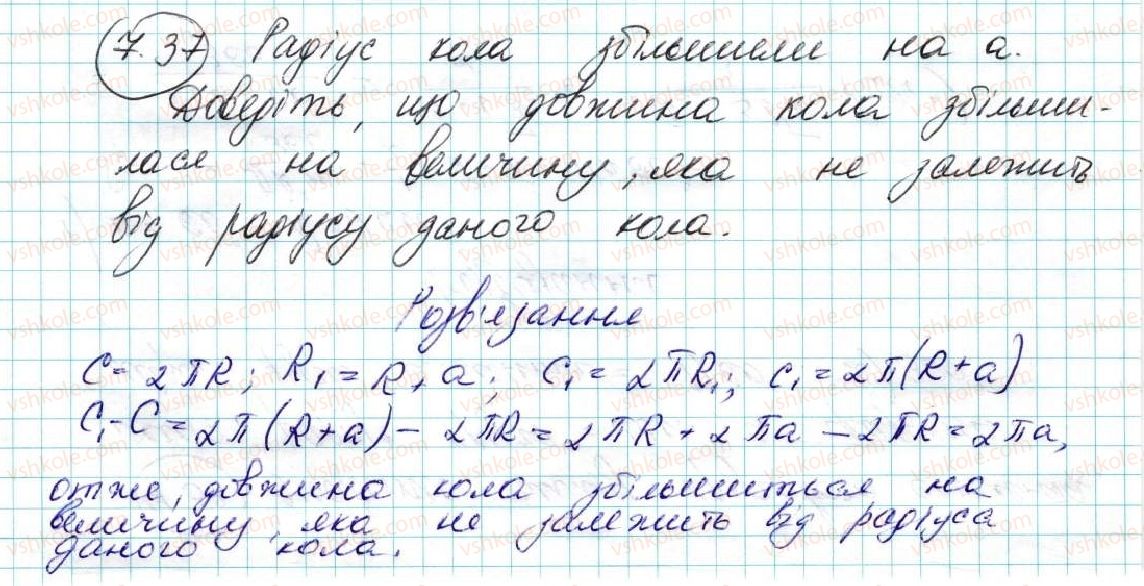 7.37 Радіус кола збільшили на a.
Доведіть, що довжина кола збільши-
лася на величину, яка не залежить
від радіусу даного кола.
Розв'язання
C = 2πR; R₁ = R + a; C₁ = 2πR₁; C₁ = 2π(R+a)
C₁ - C = 2π(R+a) - 2πR = 2πR + 2πa - 2πR = 2πa,
отже, довжина кола збільшиться на
величину, яка не залежить від радіуса
даного кола.